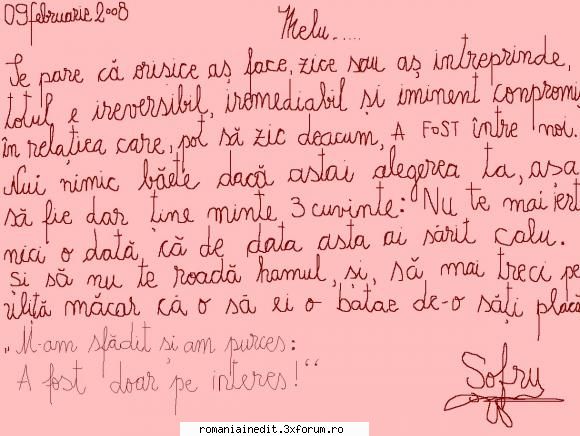 09 februarie 2008
Melu.....
Se pare că orisice aș face, zice sau aș intreprinde,
totul e ireversibil, iremediabil și iminent compromi
în relația care, pot să zic deacum, A FOST între noi.
Nui nimic băete dacă astai alegerea ta, asa
să fie dar tine minte 3 cuvinte: Nu te mai iert
nici o dată, că de data asta ai sărit calu.
Si să nu te roadă hamul, și, să mai treci pe
uliță măcar că o să ei o bătae de-o săți placă
„M-am sfădit și am purces:
A fost doar pe interes!“
Sofry
romaniainedit.3xforum.ro